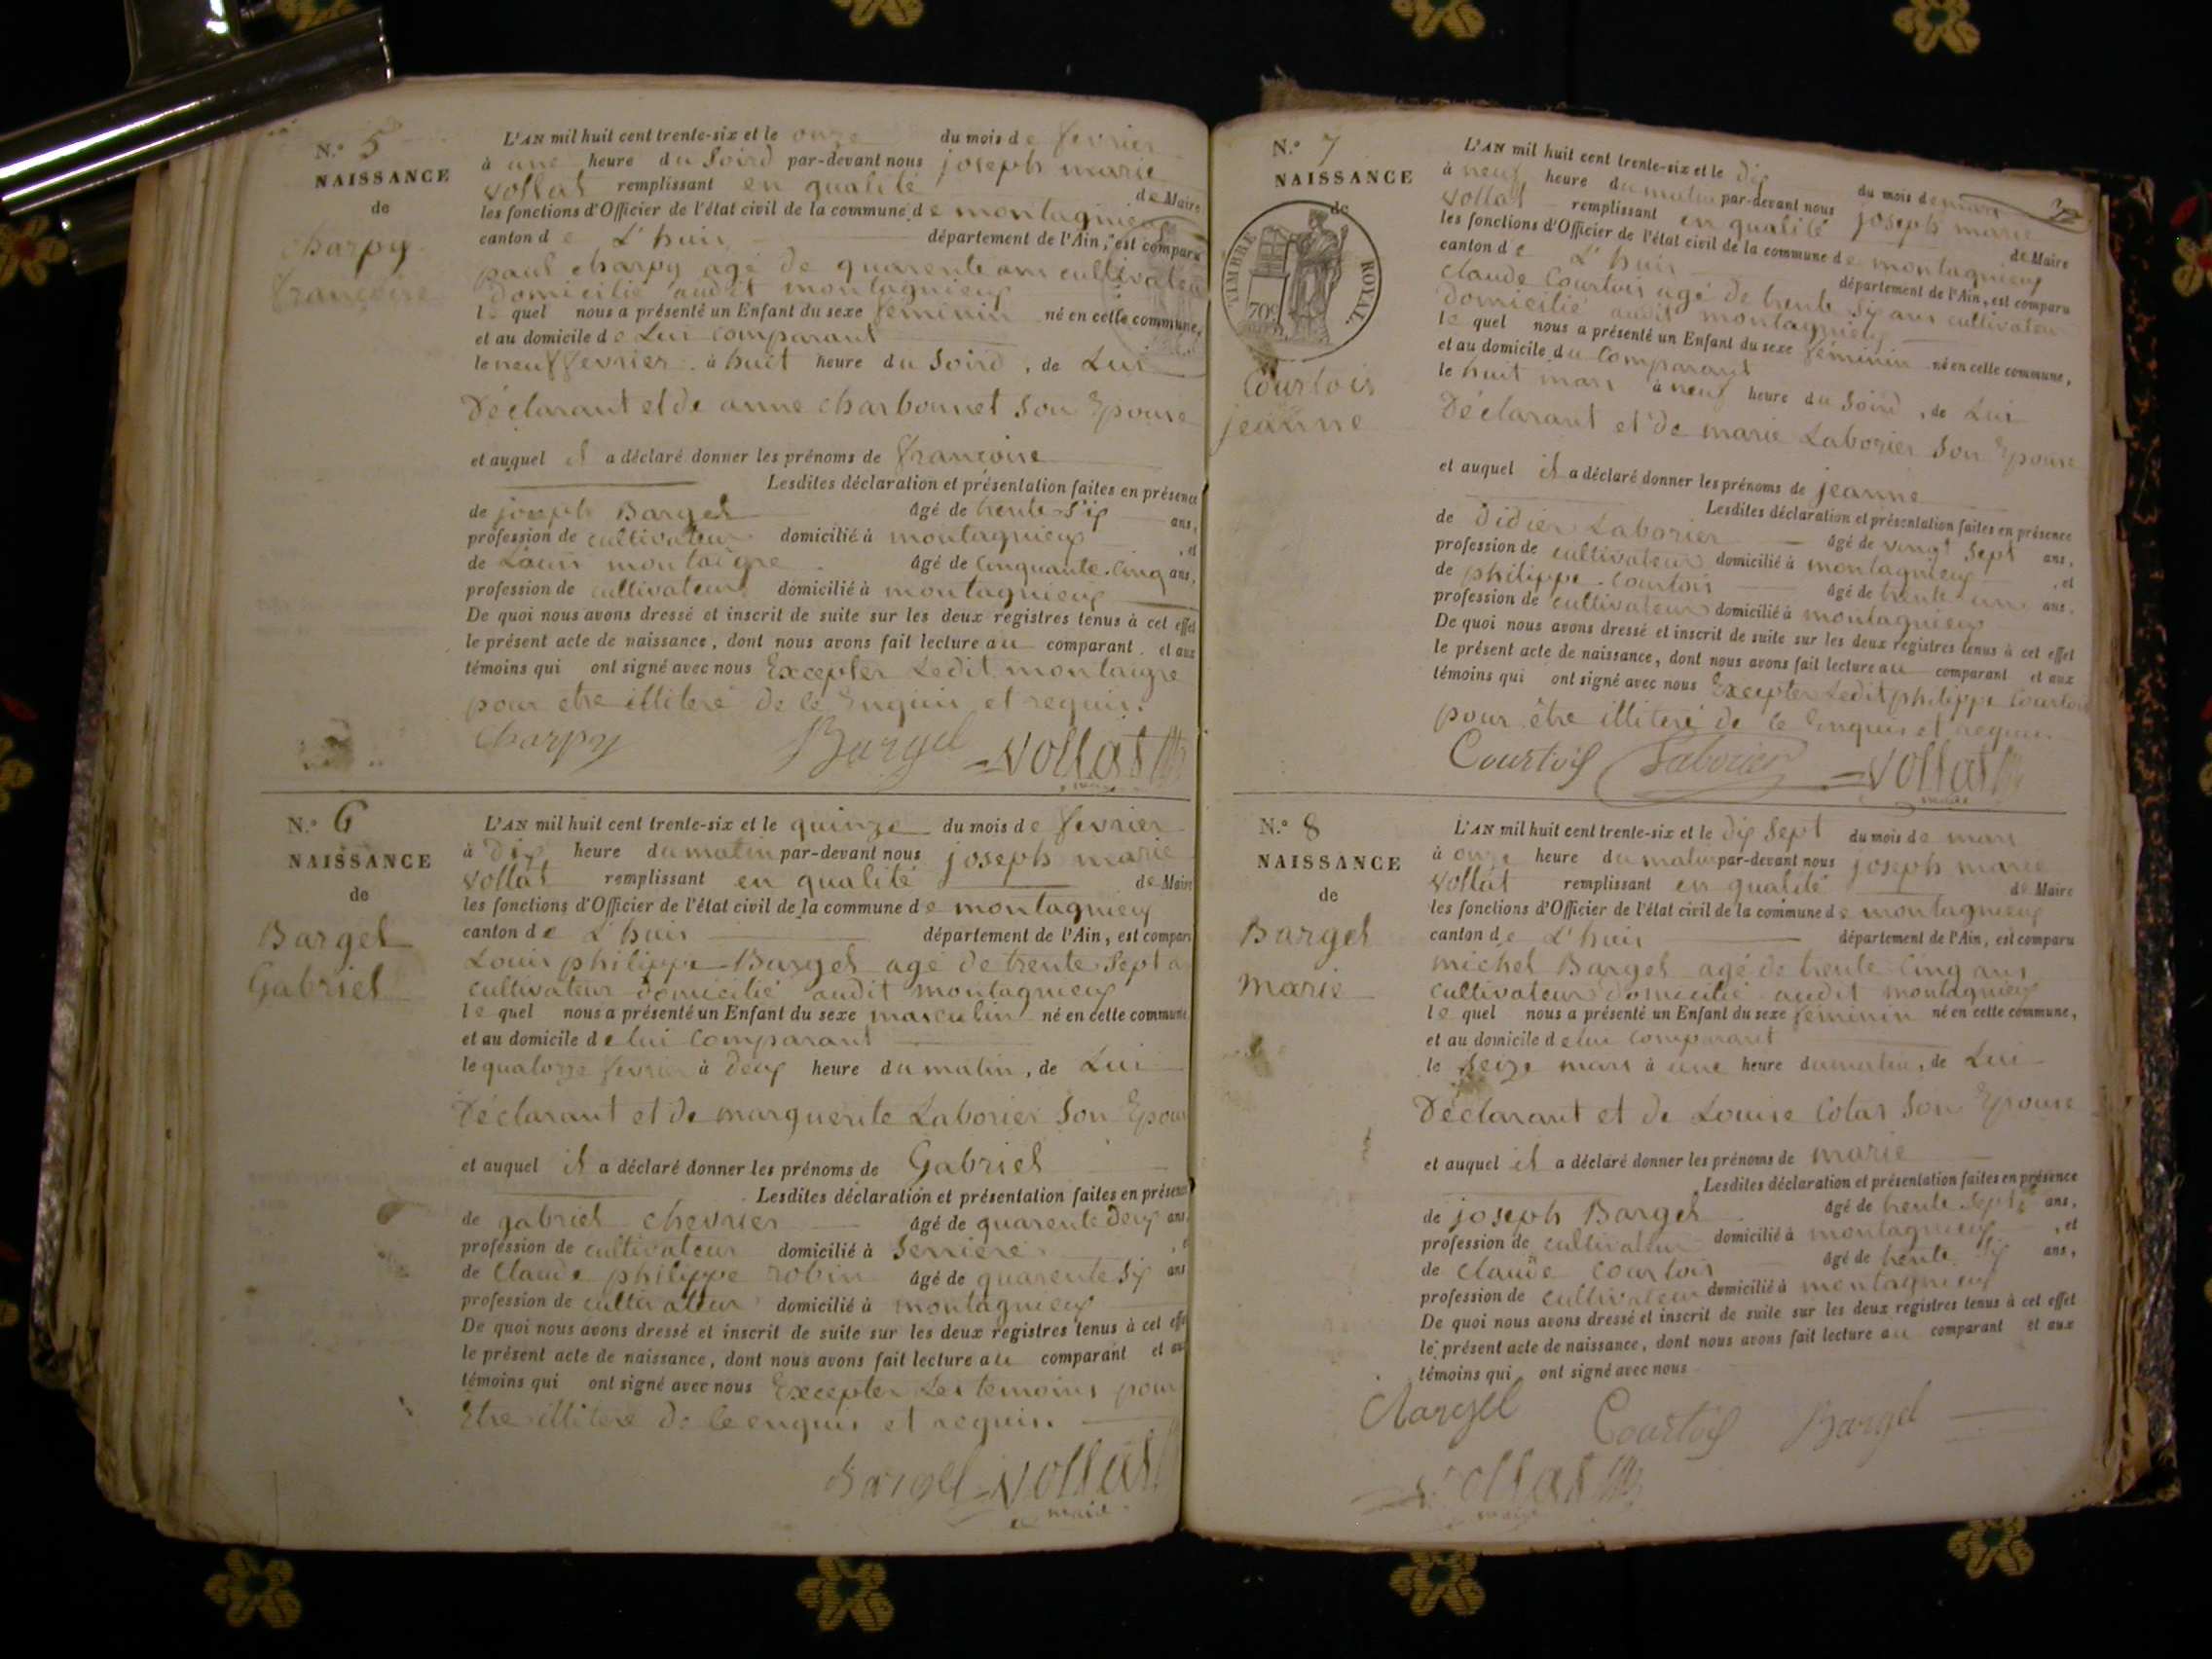 N.º 5
NAISSANCE
de
Charpy
françoise
L'AN mil huit cent trente-six et le onze du mois de fevrier
à une heure du Soird par-devant nous joseph marie
vollat remplissant en qualité de Maire
les fonctions d'Officier de l'état civil de la commune de montagnieux
canton de L'huis département de l'Ain, est comparu
paul charpy agé de quarente ans cultivateur
Domicilié audit montagnieux
le quel nous a présenté un Enfant du sexe feminin né en cette commune,
et au domicile de Lui comparant
le neuf fevrier à huit heure du Soird, de Lui
Déclarant et de anne charbonnet Son Epouse
et auquel il a déclaré donner les prénoms de françoise
Lesdites déclaration et présentation faites en présence
de joseph Bargel âgé de trente-Six ans,
profession de cultivateur domicilié à montagnieux, et
de Louis montaigre âgé de Cinquante-Cinq ans,
profession de cultivateur domicilié à montagnieux
De quoi nous avons dressé et inscrit de suite sur les deux registres tenus à cet effet
le présent acte de naissance, dont nous avons fait lecture au comparant et aux
témoins qui ont signé avec nous Excepter Ledit montaigre
pour etre illiteré de le Enquis et requis.
Charpy Bargel Vollat
maire
N.º 6
NAISSANCE
de
Bargel
Gabriel
L'AN mil huit cent trente-six et le quinze du mois de fevrier
à Dix heure du matin par-devant nous joseph marie
Vollat remplissant en qualité de Maire
les fonctions d'Officier de l'état civil de la commune de montagnieux
canton de L'huis département de l'Ain, est compar
Louis philippe Bargel agé de trente Sept a
cultivateur domicilié audit montagnieux
le quel nous a présenté un Enfant du sexe masculin né en cette commune
et au domicile de lui Comparant
le quatorze fevrier à Deux heure du matin, de Lui
Déclarant et de marguerite Laborier Son Epous
et auquel il a déclaré donner les prénoms de Gabriel
Lesdites déclaration et présentation faites en présence
de gabriel chevrier âgé de quarente Deux ans
profession de cultivateur domicilié à Serriere
de Claude philippe robin âgé de quarente Six ans
profession de cultivateur domicilié à montagnieux
De quoi nous avons dressé et inscrit de suite sur les deux registres tenus à cet effe
le présent acte de naissance, dont nous avons fait lecture au comparant et au
témoins qui ont signé avec nous Excepter Les temoins pour
Etre illiteré De le enquis et requis.
Bargel Vollat
maire
N.º 7
NAISSANCE
de
TIMBRE ROYAL
70c
Courtois
jeanne
L'AN mil huit cent trente-six et le dix du mois de mars
à neuf heure du matin par-devant nous joseph marie
vollat remplissant en qualité de Maire
les fonctions d'Officier de l'état civil de la commune de montagnieux
canton de L'huis département de l'Ain, est comparu
Claude Courtois agé de trente Six ans cultivateur
Domicilié audit montagnieux
le quel nous a présenté un Enfant du sexe féminin né en cette commune,
et au domicile du Comparant
le huit mars à neuf heure du Soird, de Lui
Déclarant et de marie Laborier Son Epouse
et auquel il a déclaré donner les prénoms de jeanne
Lesdites déclaration et présentation faites en présence
de Didier Laborier âgé de vingt Sept ans,
profession de cultivateur domicilié à montagnieux, et
de philippe Courtois âgé de trente un ans,
profession de cultivateur domicilié à montagnieux
De quoi nous avons dressé et inscrit de suite sur les deux registres tenus à cet effet
le présent acte de naissance, dont nous avons fait lecture au comparant et aux
témoins qui ont signé avec nous Excepter Ledit philippe Courtois
pour être illiteré de le Enquis et requis
Courtois Laborier Vollat
maire
N.º 8
NAISSANCE
de
Bargel
marie
L'AN mil huit cent trente-six et le dix Sept du mois de mars
à onze heure du matin par-devant nous joseph marie
Vollat remplissant en qualité de Maire
les fonctions d'Officier de l'état civil de la commune de montagnieux
canton de L'huis département de l'Ain, est comparu
michel Bargel agé de trente Cinq ans
cultivateur Domicilié audit montagnieux
le quel nous a présenté un Enfant du sexe feminin né en cette commune,
et au domicile de lui comparant
le Seize mars à une heure du matin, de Lui
Déclarant et de Louise Colas Son Epouse
et auquel il a déclaré donner les prénoms de marie
Lesdites déclaration et présentation faites en présence
de joseph Bargel âgé de trente Sept ans,
profession de cultivateur domicilié à montagnieux, et
de Claude Courtois âgé de trente Six ans,
profession de cultivateur domicilié à montagnieux
De quoi nous avons dressé et inscrit de suite sur les deux registres tenus à cet effet
le présent acte de naissance, dont nous avons fait lecture au comparant et aux
témoins qui ont signé avec nous
Bargel Courtois Bargel
Vollat
maire